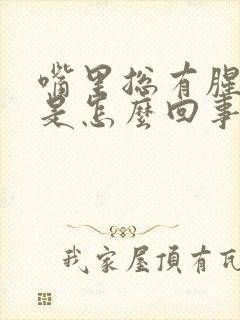 嘴里总有腥
是怎麼回事
我家屋頂有瓦